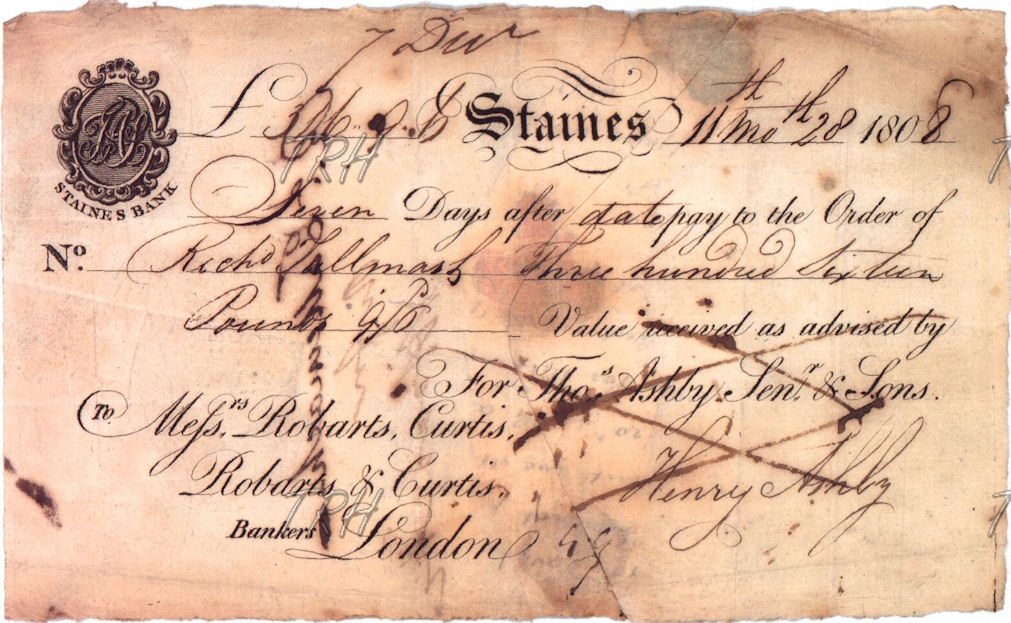 7 Decr
£ 316. 9. 6 Staines 11th Mo 28th 1808
STAINES BANK
Seven Days after date pay to the Order of
No. Richd Tallmash Three hundred Sixteen
Pounds 9/6 Value received as advised by
For Thos. Ashby Senr. & Sons.
To Messrs. Robarts, Curtis,
Robarts & Curtis, Henry Ashby
Bankers London
TRH
TRH